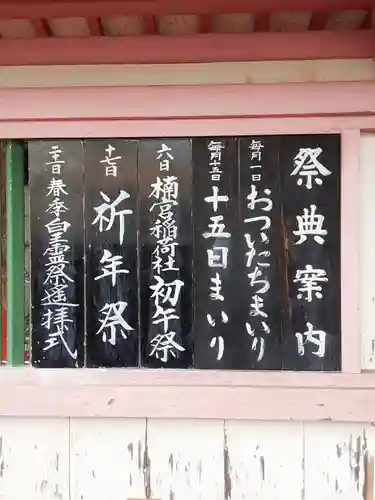 祭典案内
毎月一日
おついたちまいり
毎月十五日
十五日まいり
六日
楠宮稲荷社
初午祭
十七日
祈年祭
二十一日
春季皇霊祭遙拝式